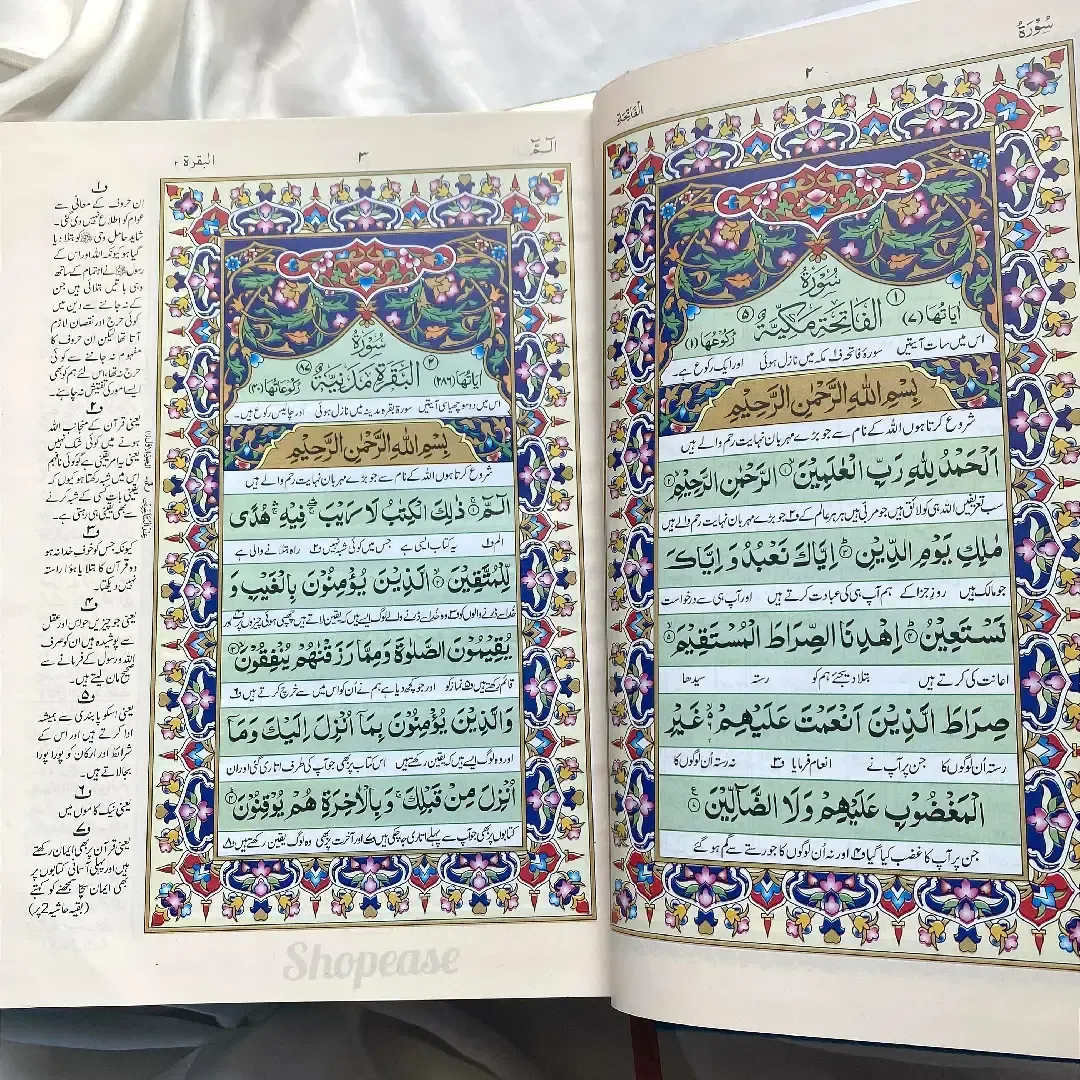 سُوْرَةُ
٢
الْفَاتِحَةِ
سُوْرَةُ
اٰيَاتُهَا (٧) ١ الْفَاتِحَةِ مَكِّيَّةٌ ٥ رُكُوْعُهَا (١)
اس میں سات آیتیں سورۂ فاتحہ ف۱ مکہ میں نازل ہوئی اور ایک رکوع ہے۔
بِسْمِ اللّٰهِ الرَّحْمٰنِ الرَّحِيْمِ
شروع کرتا ہوں اللہ کے نام سے جو بڑے مہربان نہایت رحم والے ہیں
اَلْحَمْدُ لِلّٰهِ رَبِّ الْعٰلَمِيْنَ ۙ ١ الرَّحْمٰنِ الرَّحِيْمِ ۙ ٢
سب تعریفیں اللہ ہی کو لائق ہیں جو مربی ہیں ہر ہر عالم کے ف۲ جو بڑے مہربان نہایت رحم والے ہیں
مٰلِكِ يَوْمِ الدِّيْنِ ؕ ٣ اِيَّاكَ نَعْبُدُ وَ اِيَّاكَ
جو مالک ہیں روزِ جزا کے ہم آپ ہی کی عبادت کرتے ہیں اور آپ ہی سے درخواست
نَسْتَعِيْنُ ؕ ٤ اِهْدِنَا الصِّرَاطَ الْمُسْتَقِيْمَ ۙ ٥
اعانت کی کرتے ہیں بتلا دیجئے ہم کو رستہ سیدھا
صِرَاطَ الَّذِيْنَ اَنْعَمْتَ عَلَيْهِمْ ۙ٦ غَيْرِ
رستہ اُن لوگوں کا جن پر آپ نے انعام فرمایا ف۳ نہ رستہ اُن لوگوں کا
الْمَغْضُوْبِ عَلَيْهِمْ وَلَا الضَّآلِّيْنَ
جن پر آپ کا غضب کیا گیا ف۴ اور نہ اُن لوگوں کا جو رستے سے گم ہو گئے
الٓمّٓ
٣
البقرة ٢
سُوْرَةُ
اٰيَاتُهَا (٢٨٦) ٢ الْبَقَرَةِ مَدَنِيَّةٌ ٨٧ رُكُوْعَاتُهَا (٤٠)
اس میں دو سو چھیاسی آیتیں سورۂ بقرہ مدینہ میں نازل ہوئی اور چالیس رکوع ہیں۔
بِسْمِ اللّٰهِ الرَّحْمٰنِ الرَّحِيْمِ
شروع کرتا ہوں اللہ کے نام سے جو بڑے مہربان نہایت رحم والے ہیں
الٓمّٓ ۚ ١ ذٰلِكَ الْكِتٰبُ لَا رَيْبَ ۛ فِيْهِ ۛ هُدًى
الم ف۱ یہ کتاب ایسی ہے جس میں کوئی شبہ نہیں ف۲ راہ بتلانے والی ہے
لِّلْمُتَّقِيْنَ ۙ ٢ الَّذِيْنَ يُؤْمِنُوْنَ بِالْغَيْبِ وَ
خدا سے ڈرنے والوں کو ف۳ وہ خدا سے ڈرنے والے لوگ ایسے ہیں کہ یقین لاتے ہیں چھپی ہوئی چیزوں پر اور
يُقِيْمُوْنَ الصَّلٰوةَ وَمِمَّا رَزَقْنٰهُمْ يُنْفِقُوْنَ ۙ ٣
قائم رکھتے ہیں ف۵ نماز کو اور جو کچھ دیا ہے ہم نے اُن کو اس میں سے خرچ کرتے ہیں ف۶
وَالَّذِيْنَ يُؤْمِنُوْنَ بِمَآ اُنْزِلَ اِلَيْكَ وَمَآ
اور وہ لوگ ایسے ہیں کہ یقین رکھتے ہیں اس کتاب پر بھی جو آپ کی طرف اتاری گئی اور ان
اُنْزِلَ مِنْ قَبْلِكَ ۚ وَبِالْاٰخِرَةِ هُمْ يُوْقِنُوْنَ ؕ ٤
کتابوں پر بھی جو آپ سے پہلے اتاری جا چکی ہیں ف۷ اور آخرت پر بھی وہ لوگ یقین رکھتے ہیں
ف۱
ان حروف کے معانی سے
عوام کو اطلاع نہیں دی گئی۔
شاید حامل وحی ﷺ کو بتلا دیا
گیا ہو کیونکہ اللہ اور اس کے
رسول ﷺ نے اہتمام کے ساتھ
وہی باتیں بتلائی ہیں جن
کے نہ جاننے سے دین میں
کوئی حرج اور نقصان لازم
آتا تھا لیکن ان حروف کا
مفہوم نہ جاننے سے کوئی
حرج نہ تھا، اس لئے ہم کو بھی
ایسے امور کی تفتیش نہ چاہئے۔
ف۲
یعنی قرآن کے منجانب اللہ
ہونے میں کوئی شک نہیں
یعنی یہ امر یقینی ہے گو کوئی نافہم
اس میں شبہ رکھتا ہو کیوں کہ
یقینی بات کسی کے شبہ کرنے
سے بھی یقینی ہی رہتی ہے۔
ف۳
کیونکہ جس کو خوف خدا نہ ہو
وہ قرآن کا بتلایا ہوا راستہ
نہیں دیکھتا۔
ف۴
یعنی جو چیزیں حواس اور عقل
سے پوشیدہ ہیں ان کو صرف
اللہ و رسول کے فرمانے سے
صحیح مان لیتے ہیں۔
ف۵
یعنی اسکو پابندی سے ہمیشہ
ادا کرتے ہیں اور اس کے
شرائط اور ارکان کو پورا پورا
بجالاتے ہیں۔
ف۶
یعنی نیک کاموں میں
ف۷
یعنی قرآن پر بھی ایمان رکھتے
ہیں اور پہلی آسمانی کتابوں پر
بھی ایمان سچا سمجھنے کو کہتے
(بقیہ حاشیہ 2 پر)
Shopease